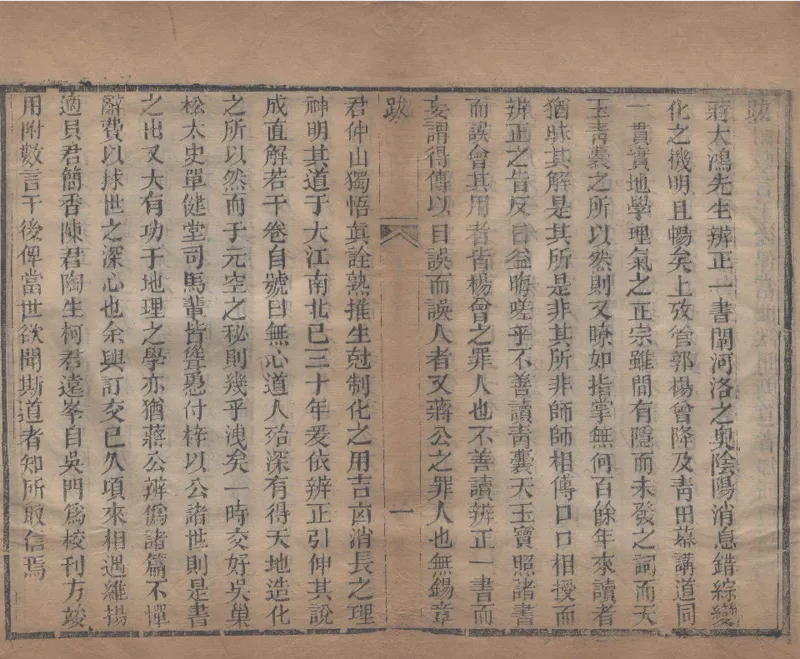 跋
蔣大鴻先生辨正一書闡河洛之奧陰陽消息錯綜變
化之機明且暢矣上攷管郭楊曾降及青田幕講道同
一貫實地學理氣之正宗雖間有隱而未發之詞而天
玉青囊之所以然則又瞭如指掌無何百餘年來讀者
猶昧其解是其所是非其所非師師相傳口口相授而
辨正之旨反日益晦嗟乎不善讀青囊天玉寶照諸書
而誤會其用者皆楊曾之罪人也不善讀辨正一書而
妄謂得傳以目誤而誤人者又蔣公之罪人也無錫章
跋 一
君仲山獨悟眞詮熟推生尅制化之用吉凶消長之理
神明其道于大江南北已三十年爰依辨正引伸其說
成直解若干卷自號曰無心道人殆深有得天地造化
之所以然而于元空之秘則幾乎洩矣一時交好吳巢
松太史單健堂司馬輩皆聳慂付梓以公諸世則是書
之出又大有功于地理之學亦猶蔣公辨僞諸篇不憚
辭費以捄世之深心也余與訂交已久頃來相遇維揚
適貝君簡香陳君陶生柯君遠峯自吳門爲校刊方竣
用附數言于後俾當世欲聞斯道者知所取信焉